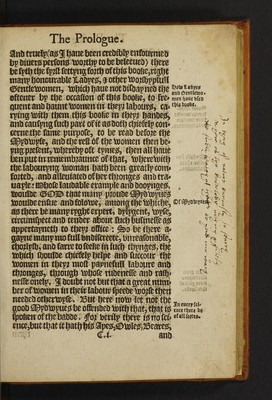 The Prologue.
And truely (as I haue been credibly enfourmed
by diuers persons worthy to be beleeued) there
be syth the fyrst settyng forth of this booke, ryght
many honourable Ladyes, & other worshypfull
Gentlewomen, which haue not disdayned the
oftener by the occasion of this booke, to fre-
quent and haunt women in theyr labours, ca-
rying with them this booke in theyr handes,
and causyng such part of it as doth chiefely con-
cerne the same purpose, to be read before the
Mydwyfe, and the rest of the women then be-
yng present, wherby oft tymes, then all haue
ben put in remembraunce of that, wherewith
the labouryng woman hath been greatly com-
forted, and alleuiated of her thronges and tra-
uayle: Whose laudable example and dooynges,
woulde GOD that many proude Mydwyues
woulde ensue and folowe, among the whiche,
as there be many ryght expert, dylygent, wyse,
circumspect and tender about such businesse as
appertayneth to theyr office: So be there a-
gayne many mo full vndiscreete, vnreasonable,
chorlysh, and farre to seeke in such thynges, the
which shoulde chiefely helpe and succour the
women in theyr most paynefull labours and
thronges, through whose rudenesse and rash-
nesse onely, I doubt not but that a great num-
ber of women in their labour speede worse then
needed otherwyse. But here now let not the
good Mydwyues be offended with that, that is
spoken of the badde. For verily there is no sci-
ence, but that it hath his Apes, Owles, Beares,
C.i. and
How Ladyes
and Gentlewo-
men haue vsed
this booke.
Of Mydwyues
In euery sci-
ence there be
of all sortes.